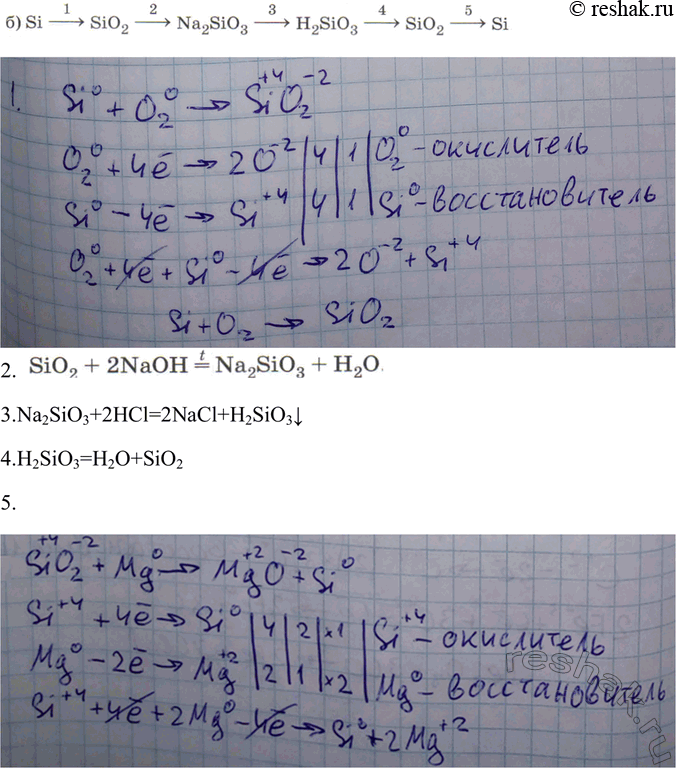 © reshak.ru
б) Si —1→ SiO₂ —2→ Na₂SiO₃ —3→ H₂SiO₃ —4→ SiO₂ —5→ Si
1. Si⁰ + O₂⁰ → Si⁺⁴O₂⁻²
O₂⁰ + 4ē → 2O⁻² | 4 | 1 | O₂⁰ - окислитель
Si⁰ - 4ē → Si⁺⁴ | 4 | 1 | Si⁰ - восстановитель
O₂⁰ + 4ē + Si⁰ - 4ē → 2O⁻² + Si⁺⁴
Si + O₂ → SiO₂
2. SiO₂ + 2NaOH =ᵗ Na₂SiO₃ + H₂O.
3.Na₂SiO₃+2HCl=2NaCl+H₂SiO₃↓
4.H₂SiO₃=H₂O+SiO₂
5.
Si⁺⁴O₂⁻² + Mg⁰ → Mg⁺²O⁻² + Si⁰
Si⁺⁴ + 4ē → Si⁰ | 4 | 2 | ×1 | Si⁺⁴ - окислитель
Mg⁰ - 2ē → Mg⁺² | 2 | 1 | ×2 | Mg⁰ - восстановитель
Si⁺⁴ + 4ē + 2Mg⁰ - 4ē → Si⁰ + 2Mg⁺²
reshak.ru